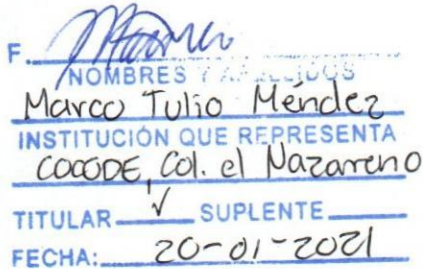 F.
NOMBRES Y APELLIDOS
Marco Tulio Méndez
INSTITUCIÓN QUE REPRESENTA
COCODE, Col. el Nazareno
TITULAR √ SUPLENTE
FECHA: 20-01-2021